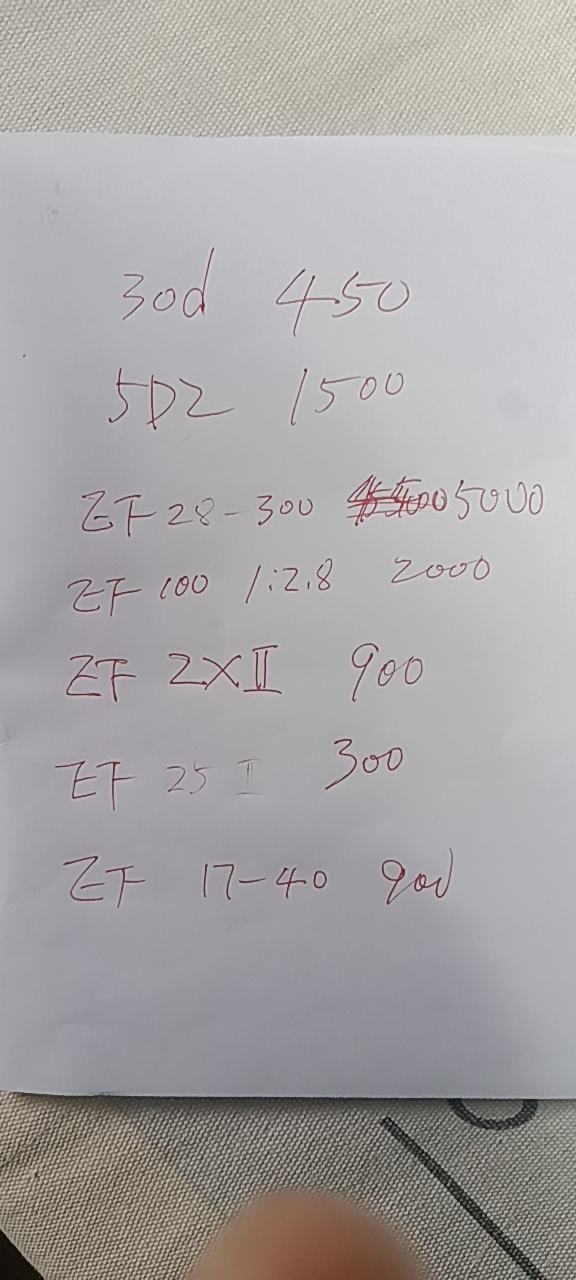 30d 450
5D2 1500
EF 28-300 5000
EF 100 1:2.8 2000
EF 2XII 900
EF 25 II 300
EF 17-40 900